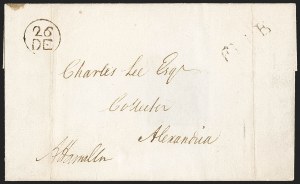 26
DE
Charles Lee Esqr
Collector
Alexandria
AHamilton